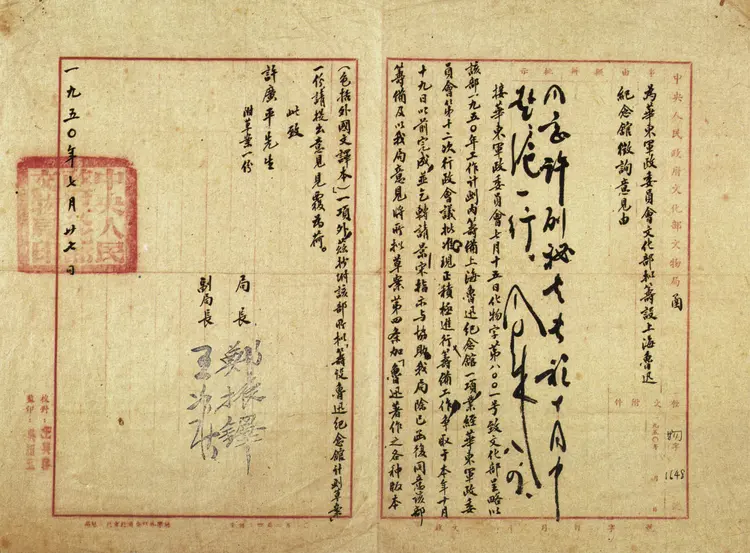 中央人民政府文化部文物局 函
事由
擬辦
批示
附件
為華東軍政委員會文化部和籌設上海魯迅
紀念館徵詢意見由
同意許副秘書長於十月中
赴滬一行。
周 八、四
字 1648 號
接華東軍政委員會七月十五日化物字第八〇〇一號致文化部呈略以
該部一九五〇年工作計劃內籌備上海魯迅紀念館一項業經華東軍政委
員會第十二次行政會議批准現正積極進行籌備工作爭取于本年十月
十九日以前完成並乞轉請前來指示与協助我局除已函復同意該部
籌備及以我局意見將所擬草案第四条加「魯迅著作之各種版本
(包括外國文譯本)」一項外茲抄附該部所擬「籌設魯迅紀念館計劃草案」
一份請提出意見見覆為荷。
此致
許廣平先生
附草案一份
局長 鄭振鐸
副局長 王冶秋
一九五〇年七月廿七日
校對：
監印：